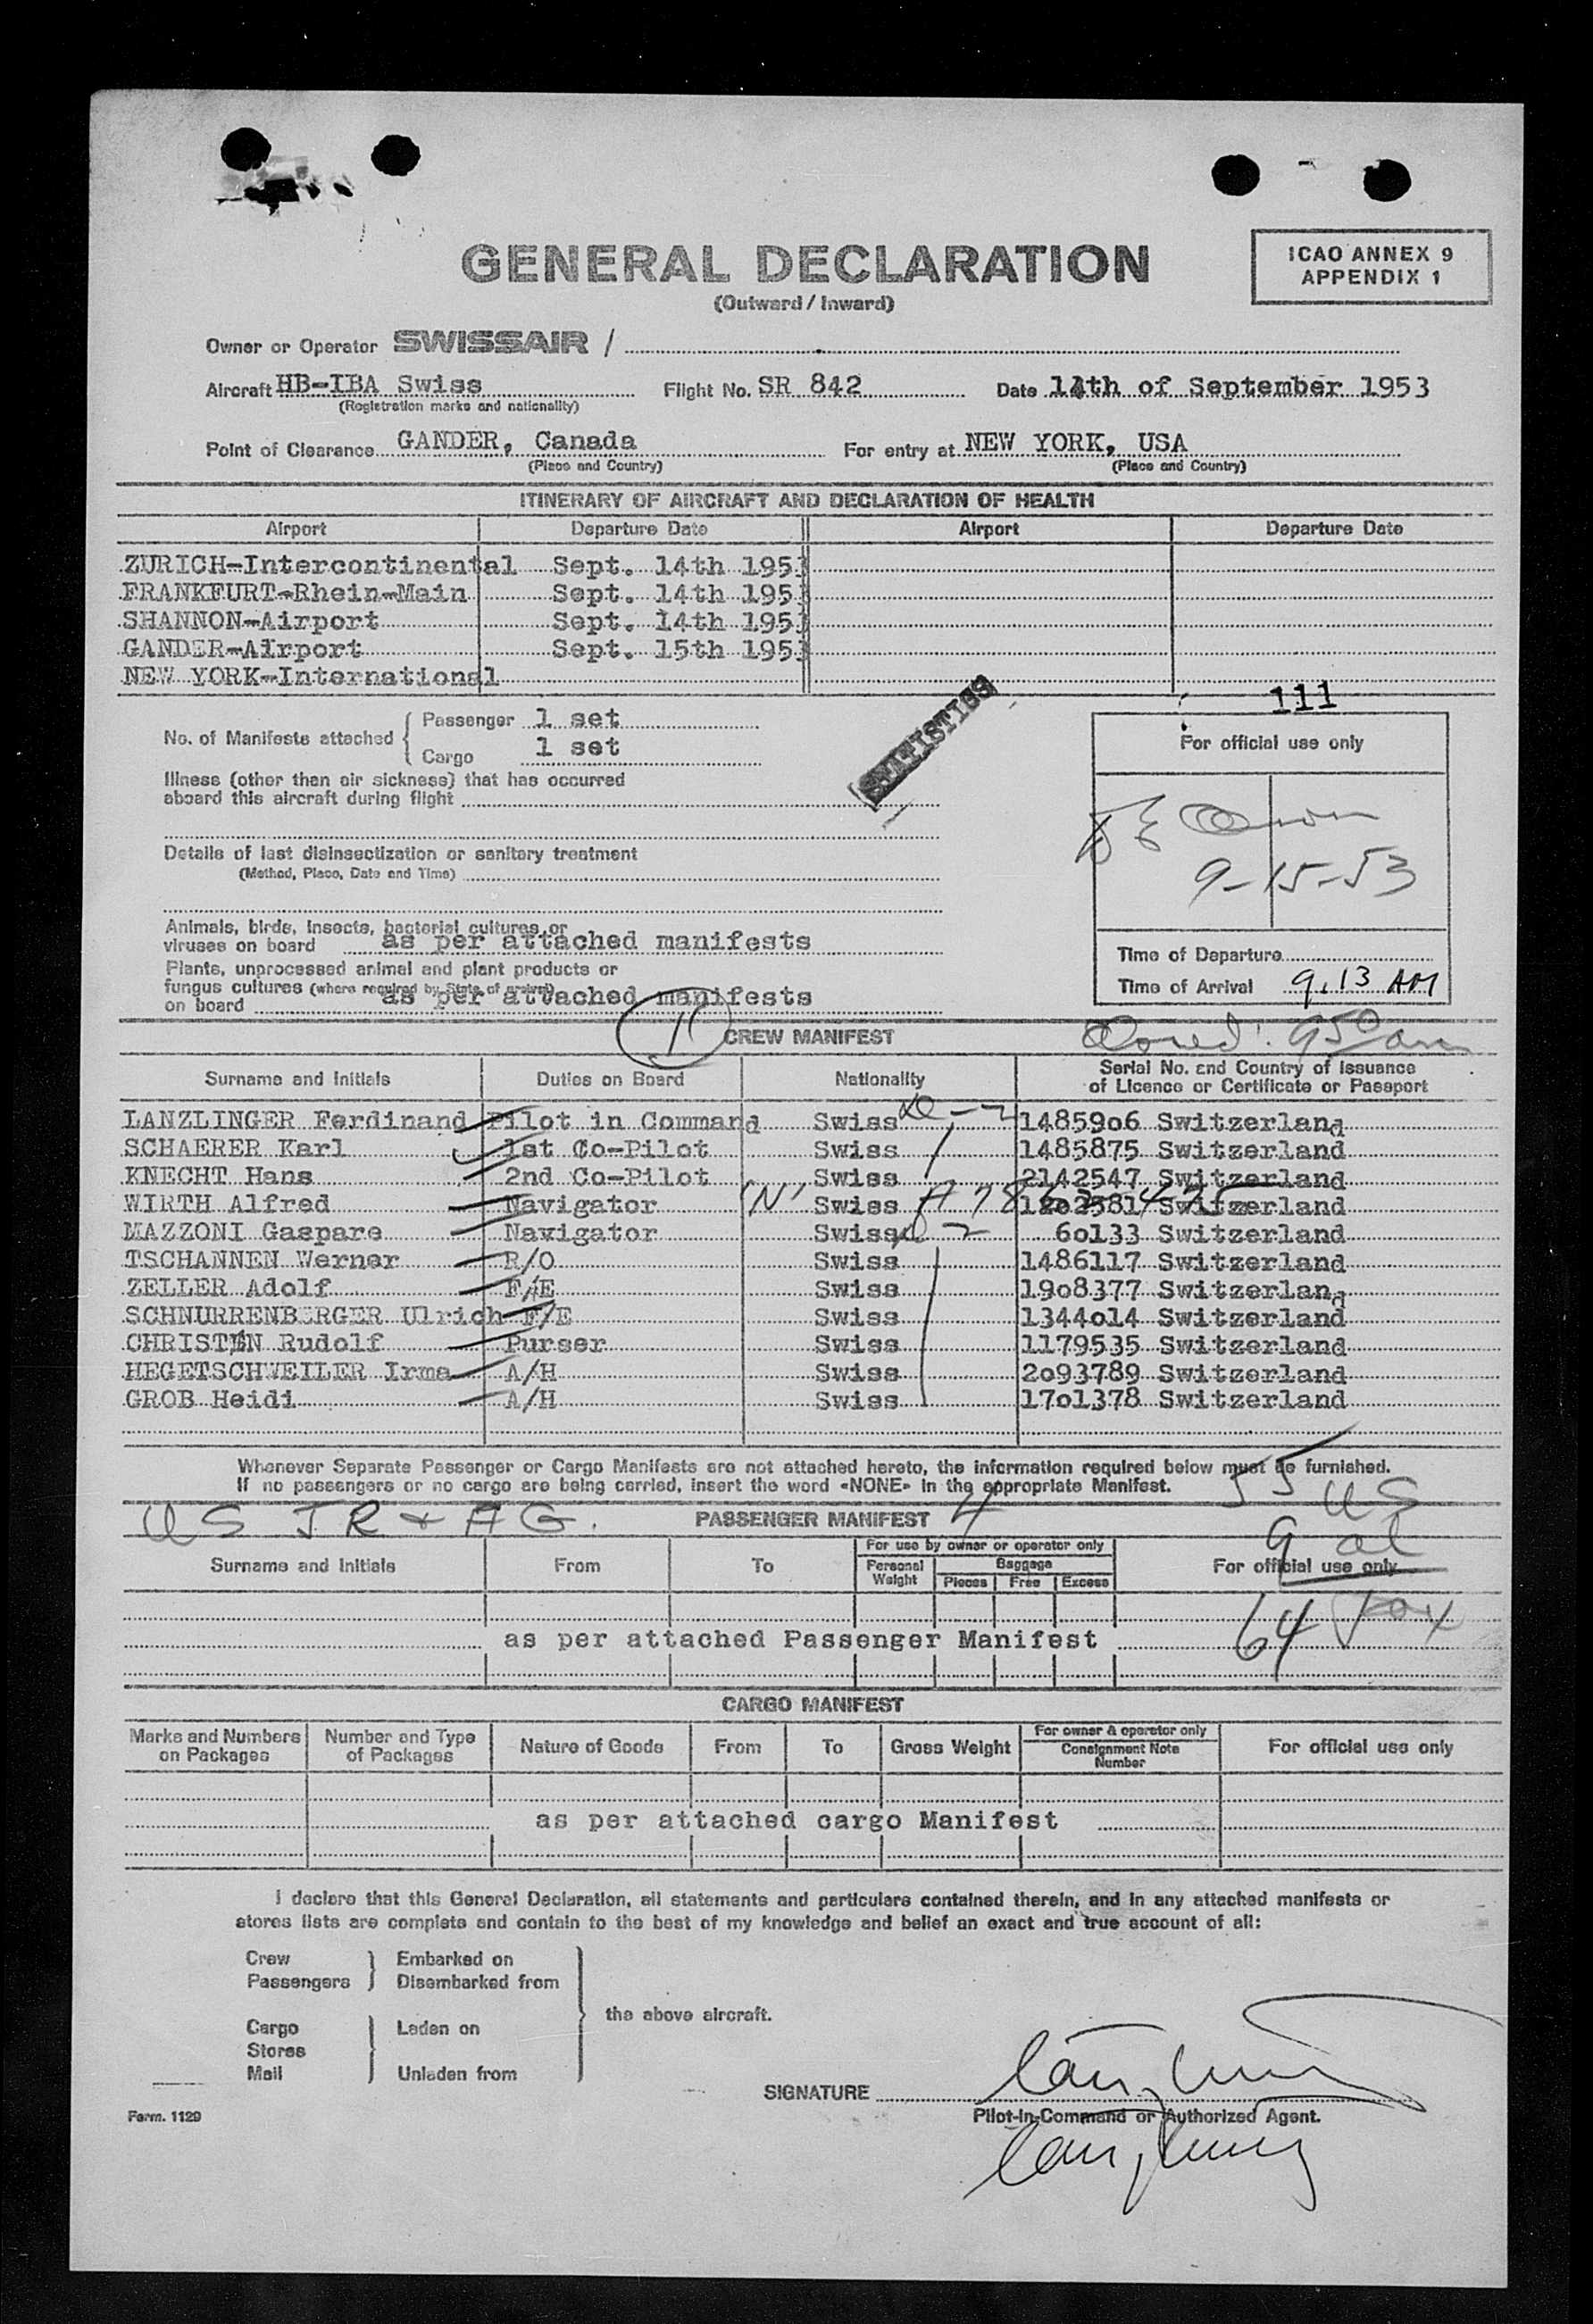 GENERAL DECLARATION
(Outward / Inward)
ICAO ANNEX 9
APPENDIX 1
Owner or Operator SWISSAIR /
Aircraft HB-IBA Swiss Flight No. SR 842 Date 14th of September 1953
(Registration marks and nationality)
Point of Clearance GANDER, Canada For entry at NEW YORK, USA
(Place and Country) (Place and Country)
ITINERARY OF AIRCRAFT AND DECLARATION OF HEALTH
Airport Departure Date Airport Departure Date
ZURICH-Intercontinental Sept. 14th 1953
FRANKFURT-Rhein-Main Sept. 14th 1953
SHANNON-Airport Sept. 14th 1953
GANDER-Airport Sept. 15th 1953
NEW YORK-International
111
STATISTICS
No. of Manifests attached { Passenger 1 set
Cargo 1 set
For official use only
Illness (other than air sickness) that has occurred
aboard this aircraft during flight
Details of last disinsectization or sanitary treatment
(Method, Place, Date and Time)
9-15-53
Animals, birds, insects, bacterial cultures or
viruses on board as per attached manifests
Plants, unprocessed animal and plant products or
fungus cultures (where required by State of arrival)
on board as per attached manifests
Time of Departure
Time of Arrival 9.13 AM
11 CREW MANIFEST
950 am
Surname and Initials Duties on Board Nationality Serial No. and Country of Issuance
of Licence or Certificate or Passport
LANZLINGER Ferdinand Pilot in Command Swiss 1485906 Switzerland
SCHAERER Karl 1st Co-Pilot Swiss 1485875 Switzerland
KNECHT Hans 2nd Co-Pilot Swiss 2142547 Switzerland
WIRTH Alfred Navigator "N" Swiss 1202581 Switzerland
MAZZONI Gaspare Navigator Swiss 60133 Switzerland
TSCHANNEN Werner R/O Swiss 1486117 Switzerland
ZELLER Adolf F/E Swiss 1908377 Switzerland
SCHNURRENBERGER Ulrich F/E Swiss 1344014 Switzerland
CHRISTEN Rudolf Purser Swiss 1179535 Switzerland
HEGETSCHWEILER Irma A/H Swiss 2093789 Switzerland
GROB Heidi A/H Swiss 1701378 Switzerland
Whenever Separate Passenger or Cargo Manifests are not attached hereto, the information required below must be furnished.
If no passengers or no cargo are being carried, insert the word «NONE» in the appropriate Manifest.
55 US
US TR + AG. PASSENGER MANIFEST 4
9 al
Surname and Initials From To For use by owner or operator only For official use only
Personal Weight Baggage
Pieces Free Excess
64 pax
as per attached Passenger Manifest
CARGO MANIFEST
Marks and Numbers on Packages Number and Type of Packages Nature of Goods From To Gross Weight For owner & operator only Consignment Note Number For official use only
as per attached cargo Manifest
I declare that this General Declaration, all statements and particulars contained therein, and in any attached manifests or
stores lists are complete and contain to the best of my knowledge and belief an exact and true account of all:
Crew } Embarked on
Passengers } Disembarked from
the above aircraft.
Cargo } Laden on
Stores
Mail } Unladen from
SIGNATURE
Form. 1129
Pilot-in-Command or Authorized Agent.